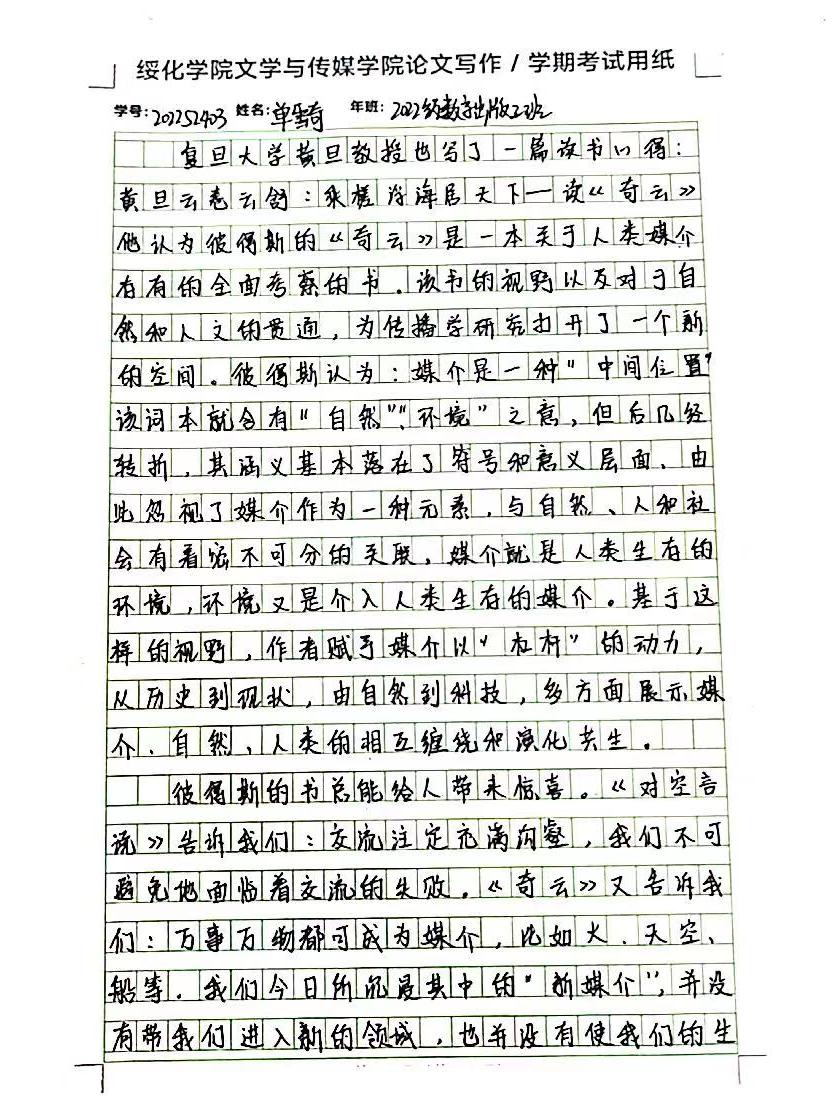 绥化学院文学与传媒学院论文写作 / 学期考试用纸
学号: 202252403 姓名: 单 奇 年班: 2022级数字出版2班
复旦大学黄旦教授也写了一篇读书心得:
黄旦云卷云舒:乘槎浮海居天下—读《奇云》
他认为彼得斯的《奇云》是一本关于人类媒介
存有的全面考察的书。该书的视野以及对于自
然和人文的贯通,为传播学研究打开了一个新
的空间。彼得斯认为:媒介是一种"中间位置"
该词本就含有"自然""环境"之意,但后几经
转折,其涵义基本落在了符号和意义层面、由
此忽视了媒介作为一种元素,与自然、人和社
会有着密不可分的关联,媒介就是人类生存的
环境,环境又是介入人类生存的媒介。基于这
样的视野,作者赋予媒介以"杠杆"的动力,
从历史到现状,由自然到科技,多方面展示媒
介、自然、人类的相互缠绕和演化共生。
彼得斯的书总能给人带来惊喜。《对空言
说》告诉我们:交流注定充满沟壑,我们不可
避免地面临着交流的失败。《奇云》又告诉我
们:万事万物都可成为媒介,比如火、天空、
船等。我们今日所沉浸其中的"新媒介",并没
有带我们进入新的领域,也并没有使我们的生